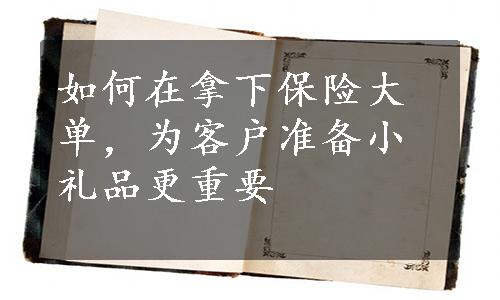 如何在拿下保险大
单，为客户准备小
礼品更重要